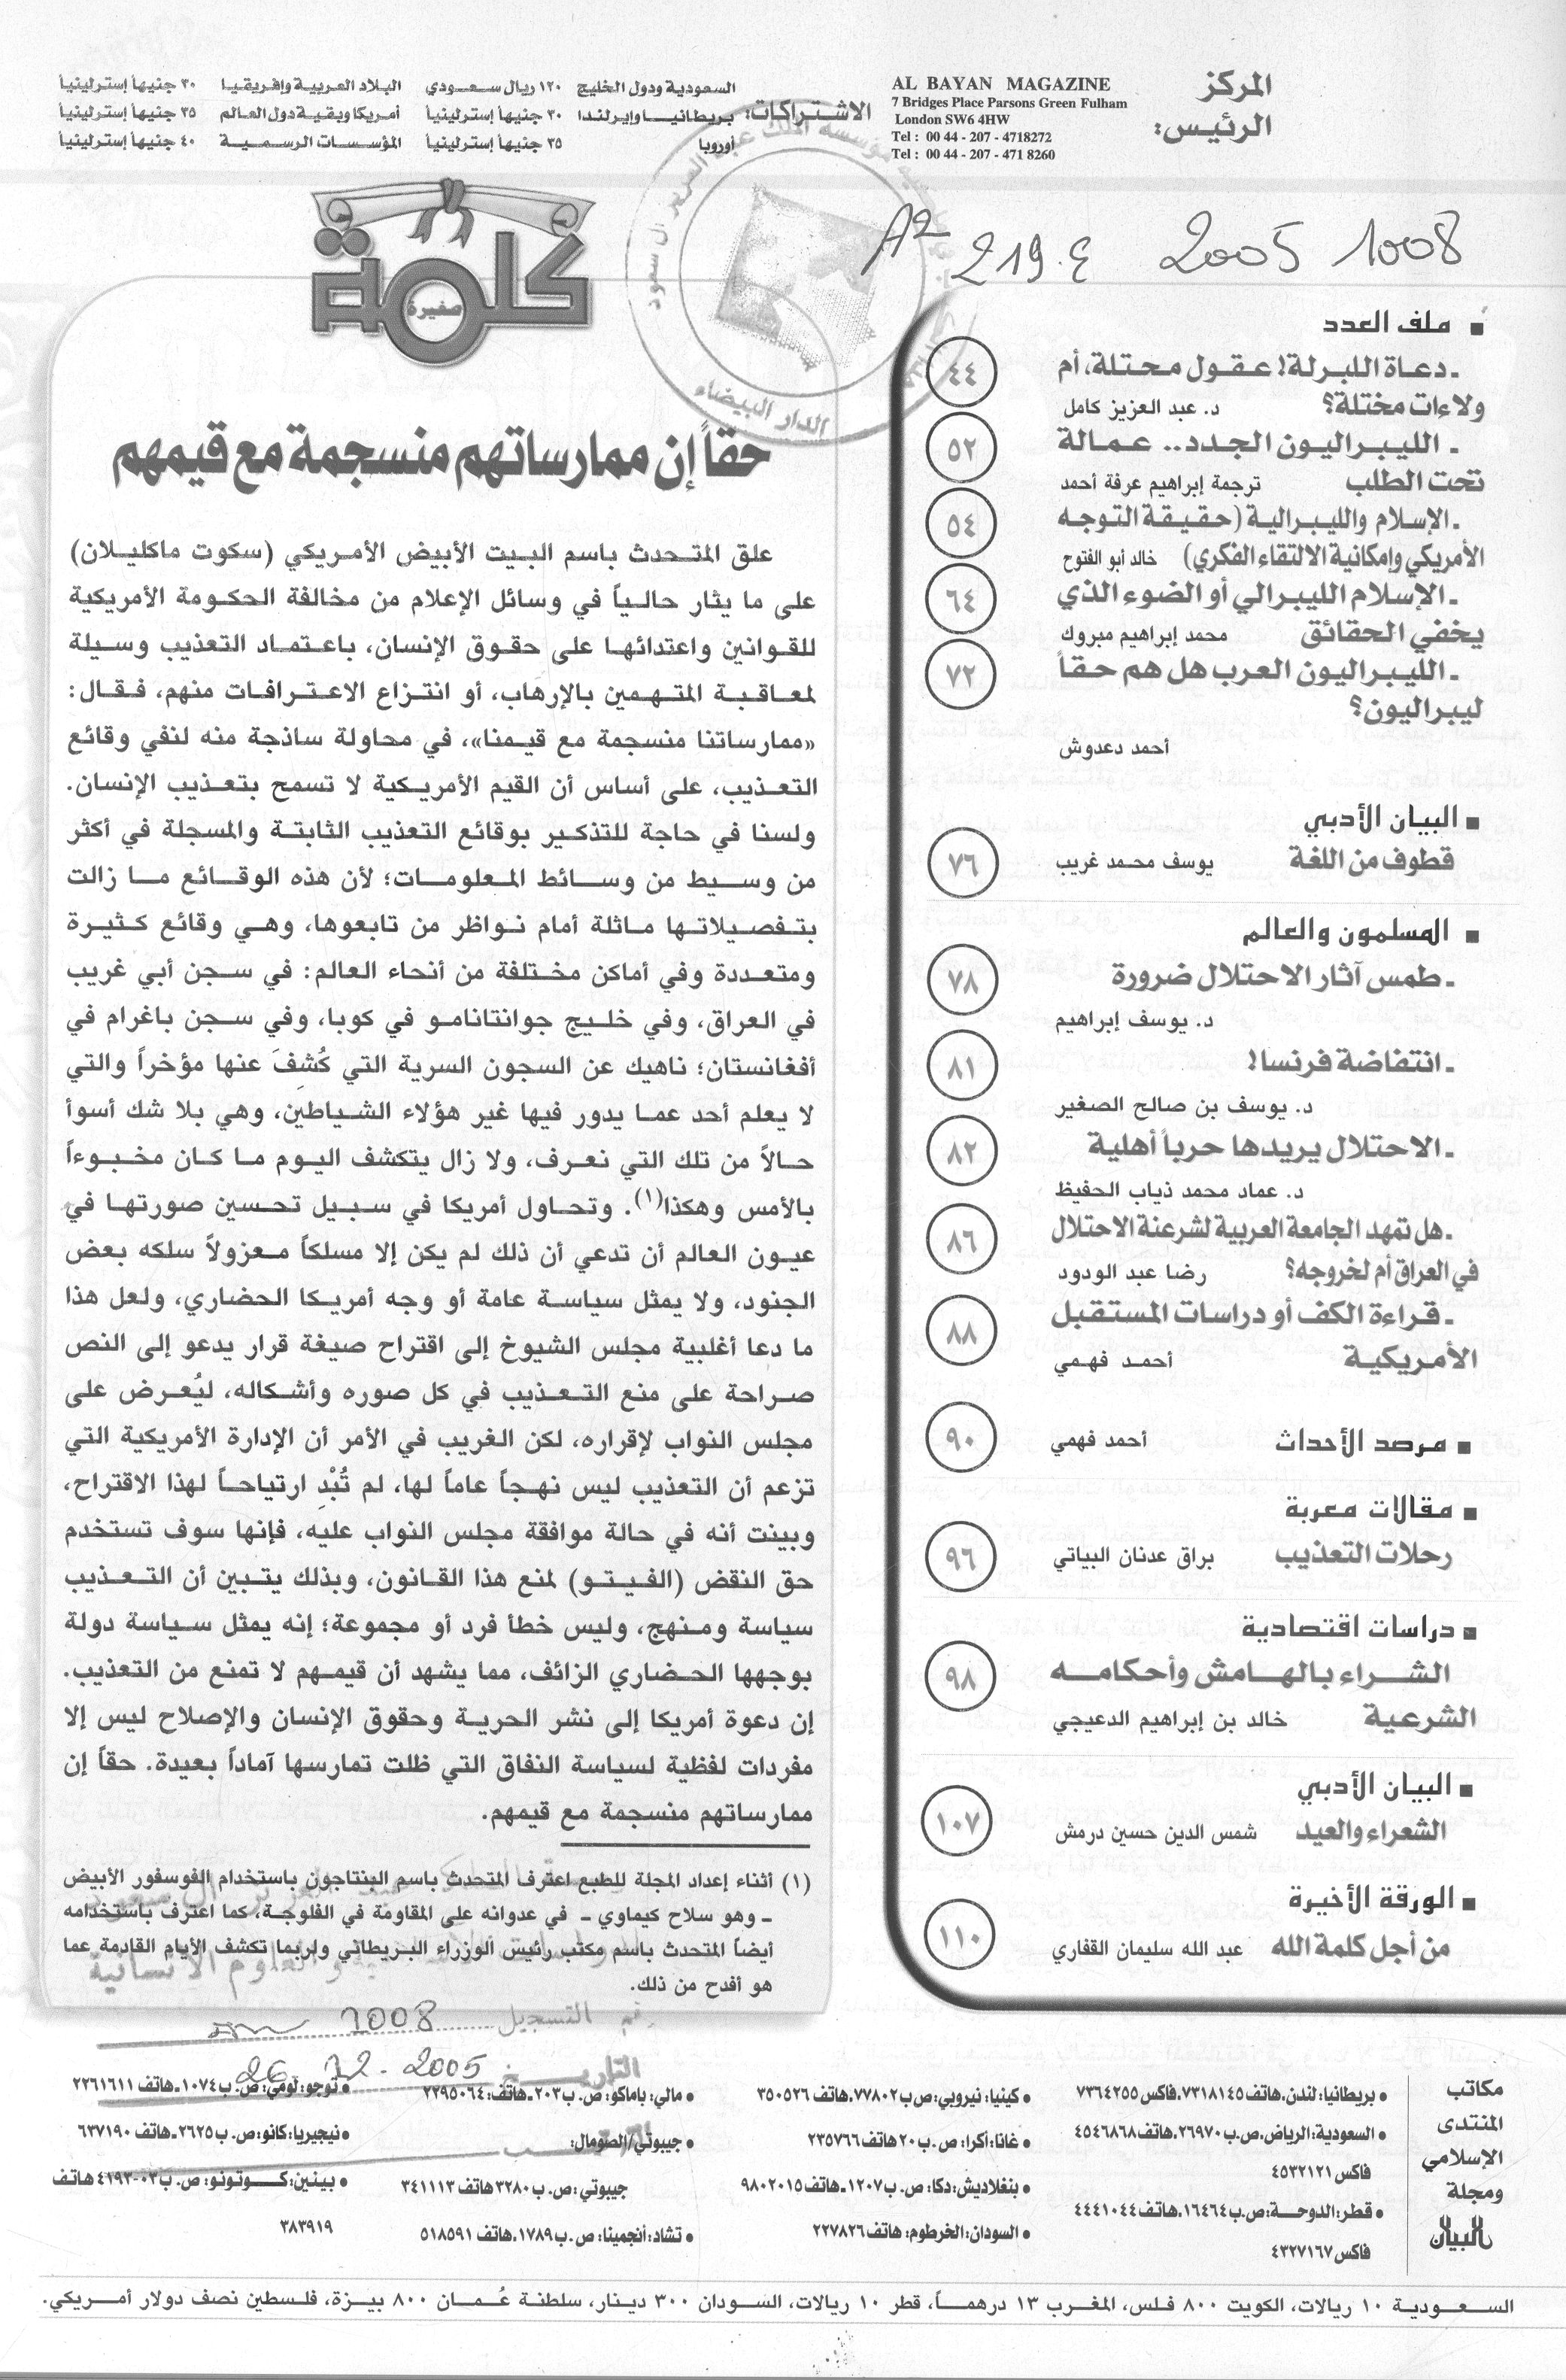 المركز
الرئيس:
AL BAYAN MAGAZINE
7 Bridges Place Parsons Green Fulham
London SW6 4HW
Tel : 00 44 - 207 - 4718272
Tel : 00 44 - 207 - 471 8260
الاشتراكات:
السعودية ودول الخليج ١٢٠ ريال سعودي
بريطانيا وإيرلندا ٣٠ جنيهاً إسترلينياً
أوروبا ٣٥ جنيهاً إسترلينياً
البلاد العربية وإفريقيا ٣٠ جنيهاً إسترلينياً
أمريكا وبقية دول العالم ٣٥ جنيهاً إسترلينياً
المؤسسات الرسمية ٤٠ جنيهاً إسترلينياً
A2 219.ع 2005 1008
الدار البيضاء
■ ملف العدد
ـ دعاة اللبرلة! عقول محتلة، أم ٤٤
ولاءات مختلة؟ د. عبد العزيز كامل
ـ الليبراليون الجدد.. عمالة ٥٢
تحت الطلب ترجمة إبراهيم عرفة أحمد
ـ الإسلام والليبرالية (حقيقة التوجه ٥٤
الأمريكي وإمكانية الالتقاء الفكري) خالد أبو الفتوح
ـ الإسلام الليبرالي أو الضوء الذي ٦٤
يخفي الحقائق محمد إبراهيم مبروك
ـ الليبراليون العرب هل هم حقاً ٧٢
ليبراليون؟
أحمد دعدوش
■ البيان الأدبي
قطوف من اللغة يوسف محمد غريب ٧٦
■ المسلمون والعالم
ـ طمس آثار الاحتلال ضرورة ٧٨
د. يوسف إبراهيم
ـ انتفاضة فرنسا! ٨١
د. يوسف بن صالح الصغير
ـ الاحتلال يريدها حرباً أهلية ٨٢
د. عماد محمد ذياب الحفيظ
ـ هل تمهد الجامعة العربية لشرعنة الاحتلال ٨٦
في العراق أم لخروجه؟ رضا عبد الودود
ـ قراءة الكف أو دراسات المستقبل ٨٨
الأمريكية أحمد فهمي
■ مرصد الأحداث أحمد فهمي ٩٠
■ مقالات معربة
رحلات التعذيب براق عدنان البياتي ٩٦
■ دراسات اقتصادية
الشراء بالهامش وأحكامه ٩٨
الشرعية خالد بن إبراهيم الدعيجي
■ البيان الأدبي
الشعراء والعيد شمس الدين حسين درمش ١٠٧
■ الورقة الأخيرة
من أجل كلمة الله عبد الله سليمان القفاري ١١٠
كلمة
صغيرة
حقاً إن ممارساتهم منسجمة مع قيمهم
علق المتحدث باسم البيت الأبيض الأمريكي (سكوت ماكليلان)
على ما يثار حالياً في وسائل الإعلام من مخالفة الحكومة الأمريكية
للقوانين واعتدائها على حقوق الإنسان، باعتماد التعذيب وسيلة
لمعاقبة المتهمين بالإرهاب، أو انتزاع الاعترافات منهم، فقال:
«ممارساتنا منسجمة مع قيمنا»، في محاولة ساذجة منه لنفي وقائع
التعذيب، على أساس أن القيم الأمريكية لا تسمح بتعذيب الإنسان.
ولسنا في حاجة للتذكير بوقائع التعذيب الثابتة والمسجلة في أكثر
من وسيط من وسائط المعلومات؛ لأن هذه الوقائع ما زالت
بتفصيلاتها ماثلة أمام نواظر من تابعوها، وهي وقائع كثيرة
ومتعددة وفي أماكن مختلفة من أنحاء العالم: في سجن أبي غريب
في العراق، وفي خليج جوانتانامو في كوبا، وفي سجن باغرام في
أفغانستان؛ ناهيك عن السجون السرية التي كُشِفَ عنها مؤخراً والتي
لا يعلم أحد عما يدور فيها غير هؤلاء الشياطين، وهي بلا شك أسوأ
حالاً من تلك التي نعرف، ولا زال يتكشف اليوم ما كان مخبوءاً
بالأمس وهكذا(١). وتحاول أمريكا في سبيل تحسين صورتها في
عيون العالم أن تدعي أن ذلك لم يكن إلا مسلكاً معزولاً سلكه بعض
الجنود، ولا يمثل سياسة عامة أو وجه أمريكا الحضاري، ولعل هذا
ما دعا أغلبية مجلس الشيوخ إلى اقتراح صيغة قرار يدعو إلى النص
صراحة على منع التعذيب في كل صوره وأشكاله، ليُعرض على
مجلس النواب لإقراره، لكن الغريب في الأمر أن الإدارة الأمريكية التي
تزعم أن التعذيب ليس نهجاً عاماً لها، لم تُبْدِ ارتياحاً لهذا الاقتراح،
وبينت أنه في حالة موافقة مجلس النواب عليه، فإنها سوف تستخدم
حق النقض (الفيتو) لمنع هذا القانون، وبذلك يتبين أن التعذيب
سياسة ومنهج، وليس خطأ فرد أو مجموعة؛ إنه يمثل سياسة دولة
بوجهها الحضاري الزائف، مما يشهد أن قيمهم لا تمنع من التعذيب.
إن دعوة أمريكا إلى نشر الحرية وحقوق الإنسان والإصلاح ليس إلا
مفردات لفظية لسياسة النفاق التي ظلت تمارسها آماداً بعيدة. حقاً إن
ممارساتهم منسجمة مع قيمهم.
(١) أثناء إعداد المجلة للطبع اعترف المتحدث باسم البنتاجون باستخدام الفوسفور الأبيض
ـ وهو سلاح كيماوي ـ في عدوانه على المقاومة في الفلوجة، كما اعترف باستخدامه
أيضاً المتحدث باسم مكتب رئيس الوزراء البريطاني ولربما تكشف الأيام القادمة عما
هو أفدح من ذلك.
رقم التسجيل 1008
التاريخ 26 12 - 2005
مكاتب
المنتدى
الإسلامي
ومجلة
البيان
● بريطانيا: لندن. هاتف ٧٣١٨١٤٥. فاكس ٧٣٦٤٢٥٥
● السعودية: الرياض. ص. ب ٢٦٩٧٠. هاتف ٤٥٤٦٨٦٨
فاكس ٤٥٣٢١٢١
● قطر: الدوحة: ص. ب ١٦٤٦٤. هاتف ٤٤٤١٠٤٤
فاكس ٤٣٢٧١٦٧
● كينيا: نيروبي: ص ب ٧٧٨٠٢. هاتف ٣٥٠٥٢٦
● غانا: أكرا: ص. ب ٢٠ هاتف ٢٣٥٧٦٦
● بنغلاديش: دكا: ص. ب ١٢٠٧ ـ هاتف ٩٨٠٢٠١٥
● السودان: الخرطوم: هاتف ٢٢٧٨٢٦
● مالي: باماكو: ص. ب ٢٠٣ ـ هاتف: ٢٢٩٥٠٦٤
● جيبوتي/الصومال:
جيبوتي: ص. ب ٣٢٨٠ هاتف ٣٤١١١٣
● تشاد: أنجمينا: ص. ب ١٧٨٩. هاتف ٥١٨٥٩١
● توجو: لومي: ص. ب ١٠٧٤ ـ هاتف ٢٢٦١٦١١
● نيجيريا: كانو: ص. ب ٢٦٢٥ ـ هاتف ٦٣٧١٩٠
● بينين: كوتونو: ص. ب ٠٣-٤١٩٣ هاتف
٣٨٣٩١٩
السعودية ١٠ ريالات، الكويت ٨٠٠ فلس، المغرب ١٣ درهماً، قطر ١٠ ريالات، السودان ٣٠٠ دينار، سلطنة عُمان ٨٠٠ بيزة، فلسطين نصف دولار أمريكي.